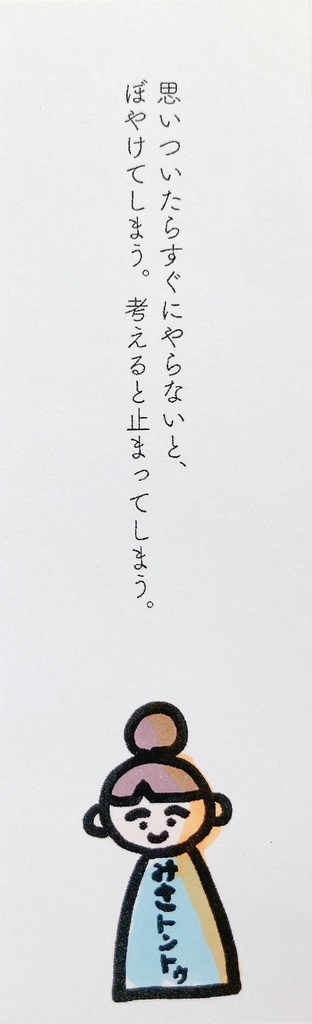 思いついたらすぐにやらないと、
ぼやけてしまう。考えると止まってしまう。
みさトントゥ